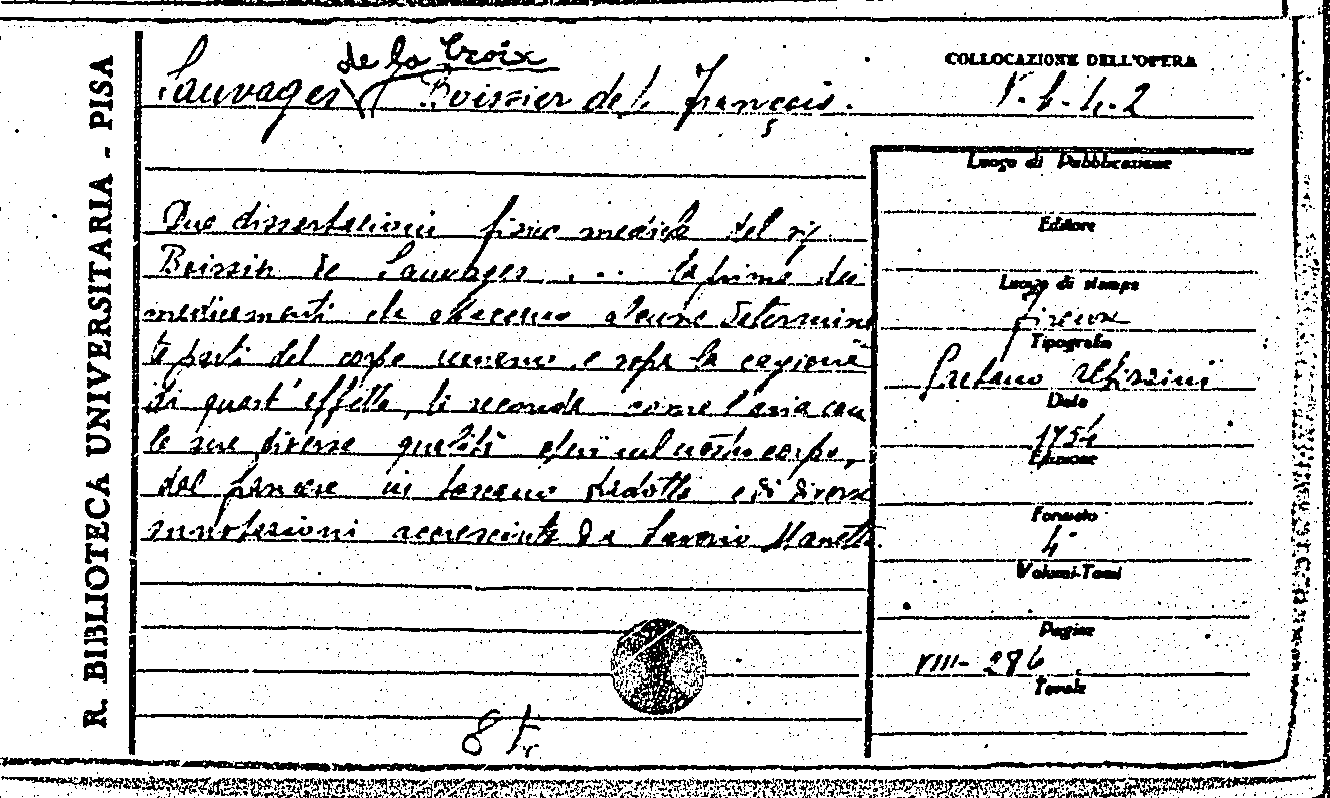 R. BIBLIOTECA UNIVERSITARIA - PISA
de la Croix
Sauvages Boissier de François.
COLLOCAZIONE DELL'OPERA
Due dissertazioni fisico mediche del sig.
Boissier de Sauvages .... La prima dei
medicamenti che attaccano alcune determina
te parti del corpo umano, e sopra la cagione
di quest'effetto, la seconda come l'aria con
le sue diverse qualità operi sul nostro corpo,
dal francese in toscano tradotte e di diverse
annotazioni accresciute da Saverio Manetti.
8
Luogo di Pubblicazione
Editore
Luogo di stampa
Firenze
Tipografia
Gaetano Albizzini
Data
1754
Edizione
Formato
4°
Volumi-Tomi
Pagine
VIII-286
Tavole